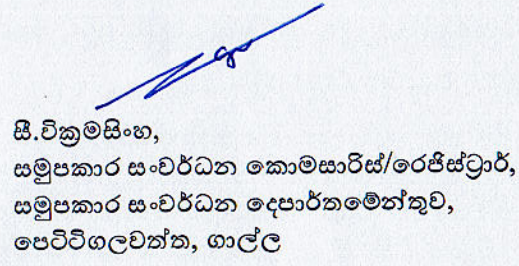 සී.වික්‍රමසිංහ,
සමුපකාර සංවර්ධන කොමසාරිස්/රෙජිස්ට්‍රාර්,
සමුපකාර සංවර්ධන දෙපාර්තමේන්තුව,
පෙට්ටිගලවත්ත, ගාල්ල